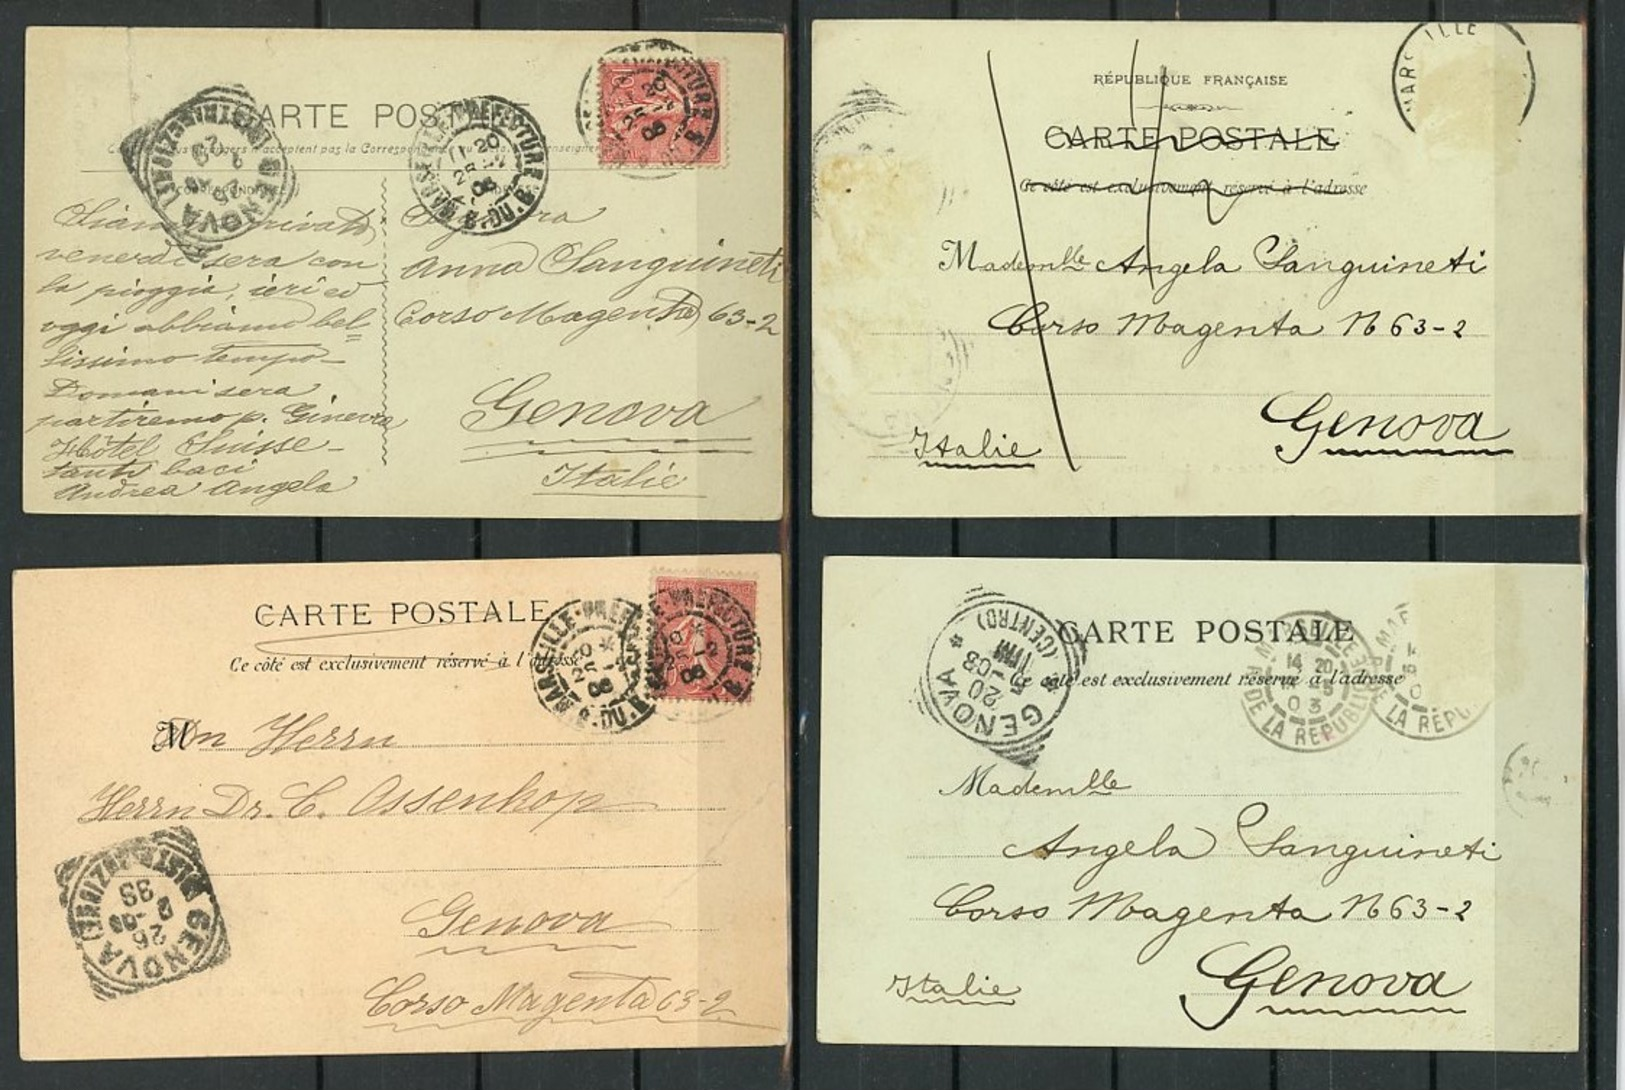 CARTE POSTALE
MARSEILLE PREFECTURE
B. DU R.
11 20
25
06
GENOVA
venerdì sera con
la pioggia, ieri ed
oggi abbiamo bel-
lissimo tempo-
Domani sera
partiremo p. Ginevra
Hôtel Suisse-
tanti baci
Andrea Angela
Anna Sanguineti
Corso Magenta 63-2
Genova
Italie
RÉPUBLIQUE FRANÇAISE
CARTE POSTALE
Ce côté est exclusivement réservé à l'adresse
Mademlle Angela Sanguineti
Corso Magenta N 63-2
Genova
Italie
CARTE POSTALE
Ce côté est exclusivement réservé à l'adresse
MARSEILLE PREFECTURE
Herrn
Herrn Dr. C. Ossenkop
Genova
Corso Magenta 63-2
GENOVA
CARTE POSTALE
Ce côté est exclusivement réservé à l'adresse
GENOVA
(CENTRO)
14 20
03
R. DE LA REPUBLIQUE
Mademlle
Angela Sanguineti
Corso Magenta N 63-2
Genova
Italie